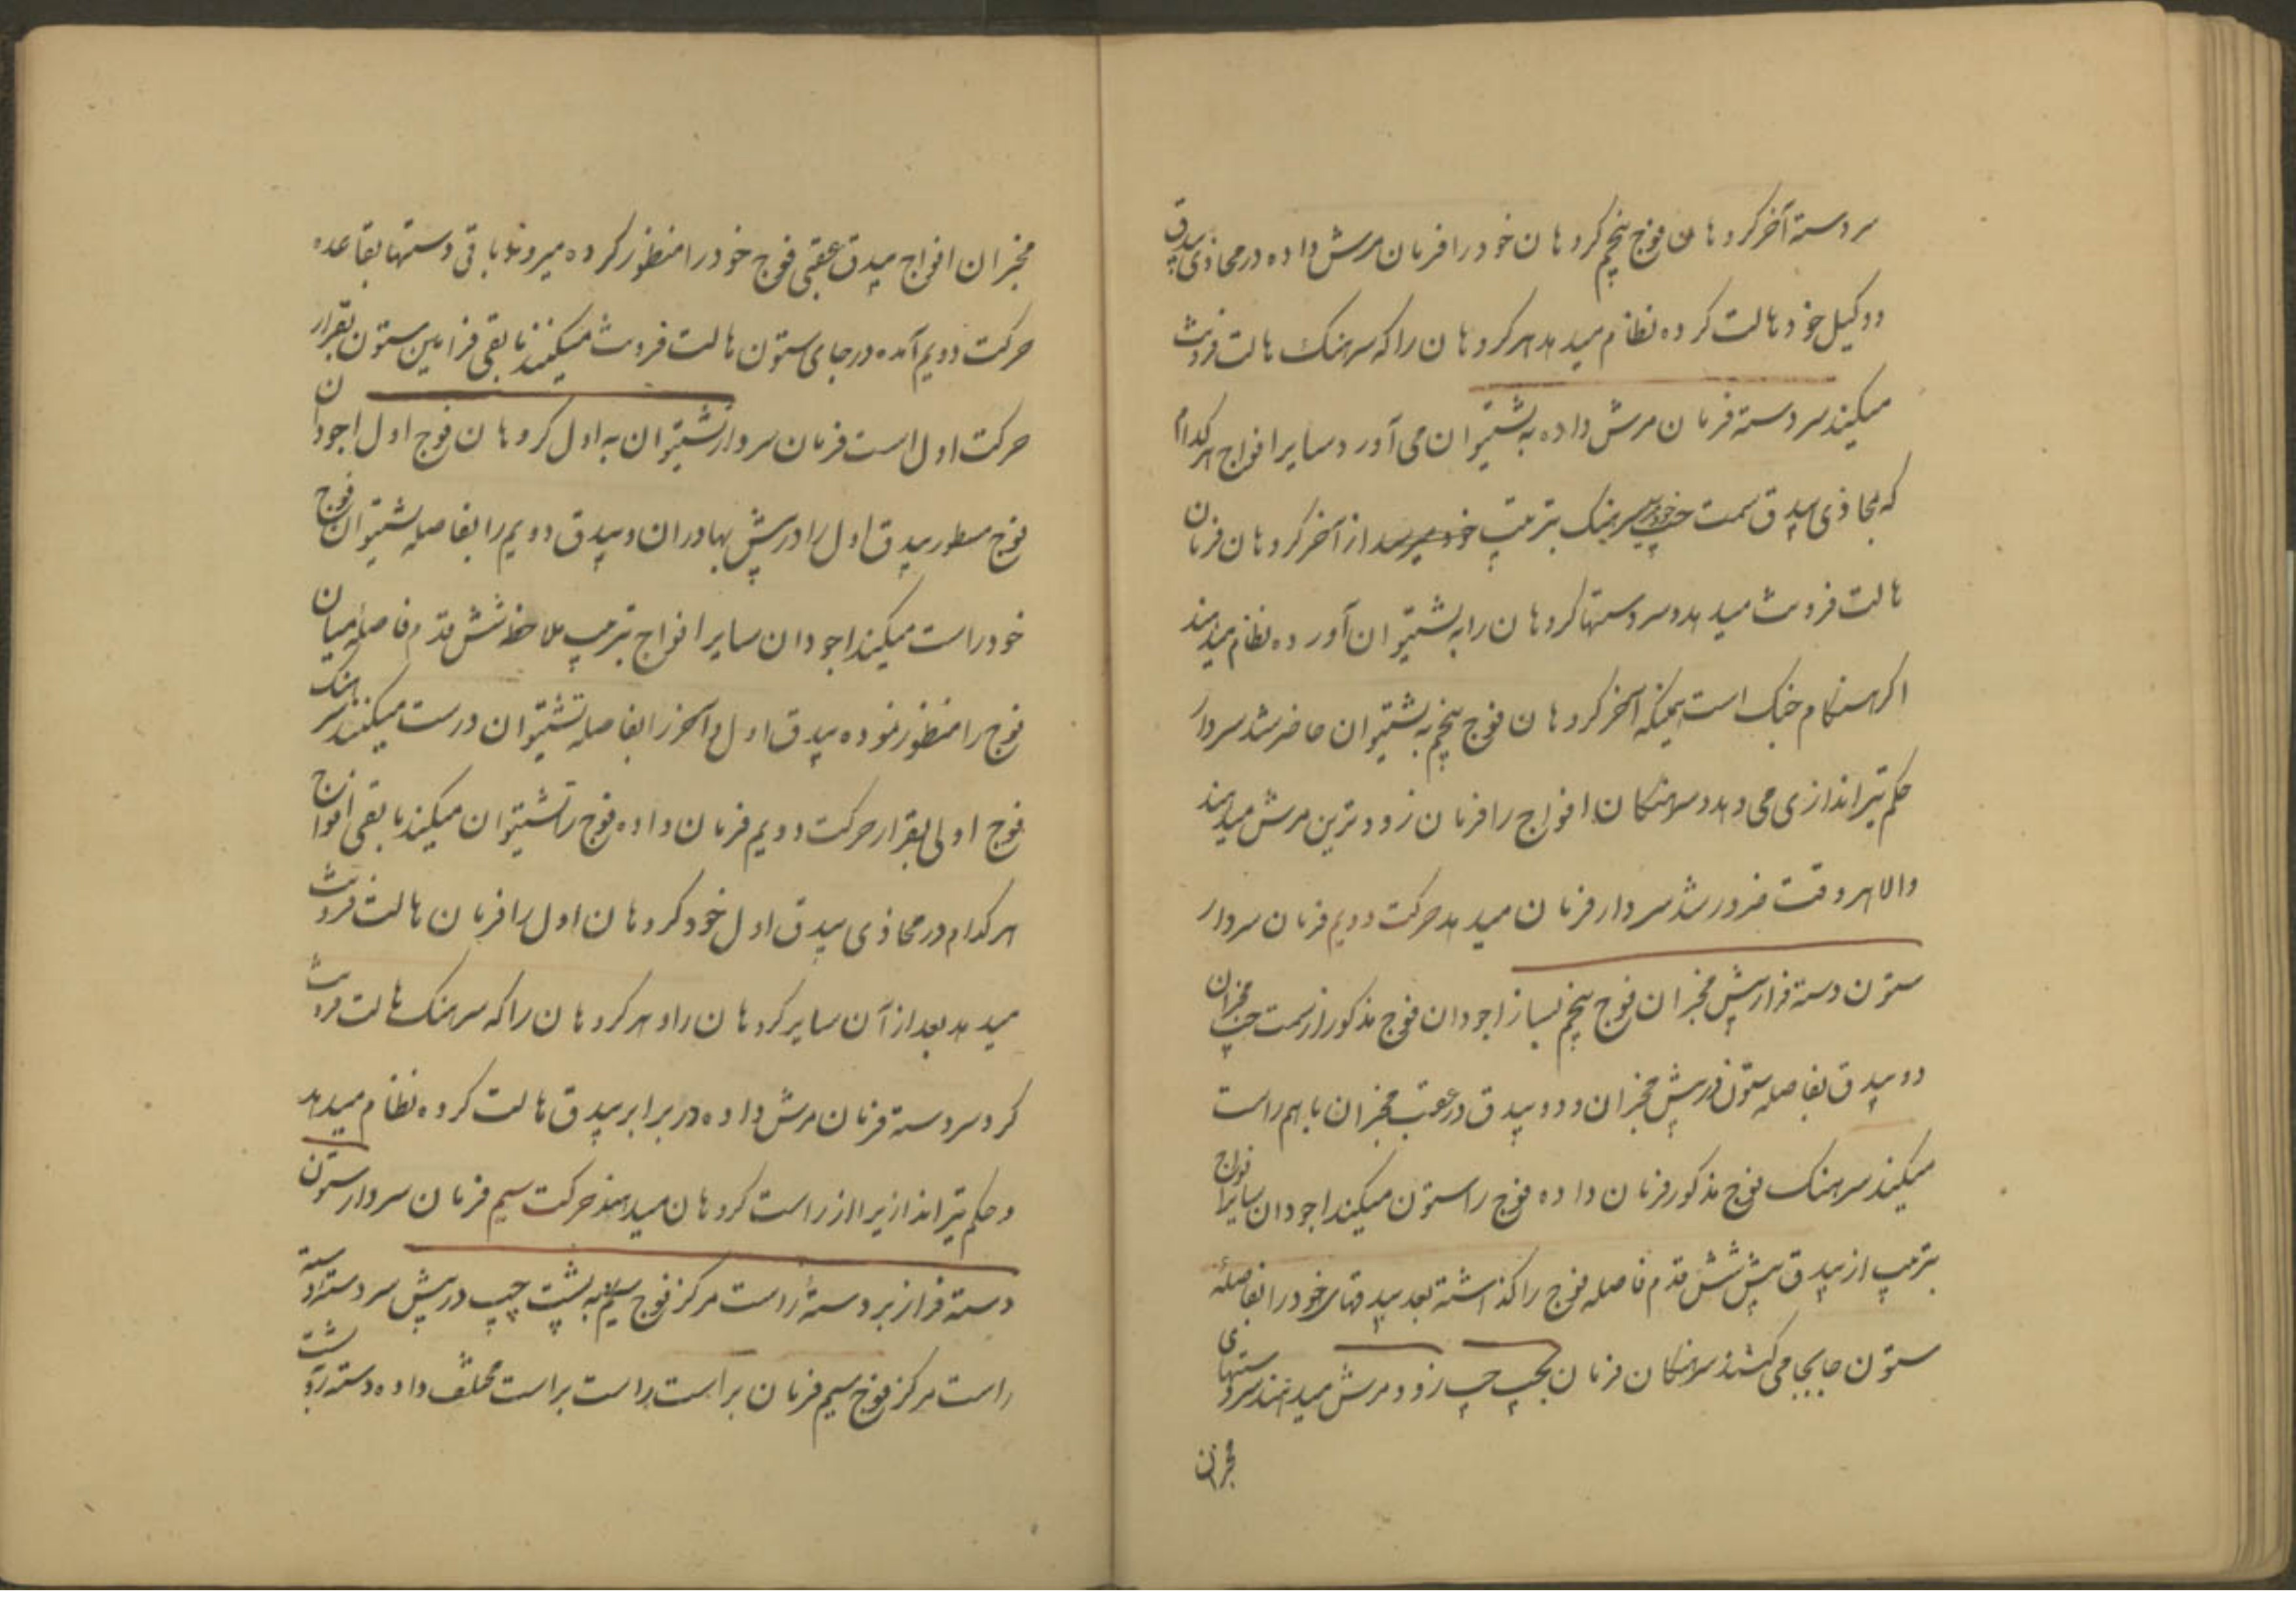 سر دسته آخر کروهان فوج پنجم کروهان خود را فرمان مرش داده در محاذی بیدق
دو وکیل خود هالت کرده نظام میدهد هر کروهان را که سرهنک هالت فرونت
میکند سر دسته فرمان مرش داده به پشتیوان می آورد و سایر افواج هر کدام
که بمحاذی بیدق سمت چپ سرهنک بترتیب خود میرسد از آخر کروهان فرمان
هالت فرونت میدهد و سر دستها کروهان را به پشتیوان آورده نظام میدهند
اکر هنکام جنک است همینکه آخر کروهان فوج پنجم به پشتیوان حاضر شد سردار
حکم تیراندازی می دهد و سرهنکان افواج را فرمان زودترین مرش میدهند
والا هر وقت ضرور شد سردار فرمان میدهد حرکت دویم فرمان سردار
ستون دسته فرا ز پیش مخبران فوج پنجم بساز اجودان فوج مذکور از سمت چپ مخبران
دو بیدق بفاصله ستون در پیش مخبران و دو بیدق در عقب مخبران با هم راست
میکند سرهنک فوج مذکور فرمان داده فوج را ستون میکند اجودان سایر افواج
بترتیب از بیدق پیش شش قدم فاصله فوج را کذاشته بعد بیدقهای خود را بفاصلهٔ
ستون جابجا می کشند سرهنکان فرمان بچپ چپ زود مرش میدهند سر دستهای
مخبران
مخبران افواج بیدق عقبی فوج خود را منظور کرده میروند باقی دستها بقاعده
حرکت دویم آمده در جای ستون هالت فرونت میکنند مابقی فرامین ستون بقرار
حرکت اول است فرمان سردار پشتیوان به اول کروهان فوج اول اجودان
فوج مسطور بیدق اول را در پیش بهادران و بیدق دویم را بفاصله پشتیوان فوج
خود راست میکند اجودان سایر افواج بترتیب ملاحظه شش قدم فاصله میان
فوج را منظور نموده بیدق اول و آخر را بفاصله پشتیوان درست میکنند سرهنک
فوج اولی بقرار حرکت دویم فرمان داده فوج را پشتیوان میکند مابقی افواج
هر کدام در محاذی بیدق اول خود کروهان اول را فرمان هالت فرونت
میدهد بعد از آن سایر کروهان را و هر کروهان را که سرهنک هالت فرونت
کرد سر دسته فرمان مرش داده در برابر بیدق هالت کرده نظام میدهد
و حکم تیراندازیرا از راست کروهان میدهند حرکت سیم فرمان سردار ستون
دسته فراز بر دستهٔ راست مرکز فوج سیم به پشت چپ در پیش سر دسته دسته
راست مرکز فوج سیم فرمان براست راست براست مختلف داده دسته را پشت